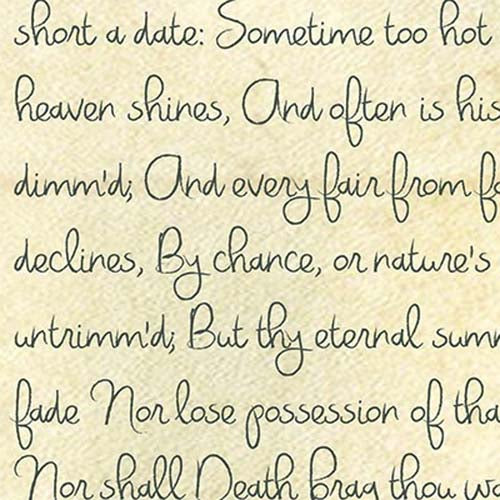 short a date: Sometime too hot
heaven shines, And often is his
dimm'd; And every fair from
declines, By chance, or nature's
untrimm'd; But thy eternal
fade Nor lose possession of
Nor shall Death brag thou